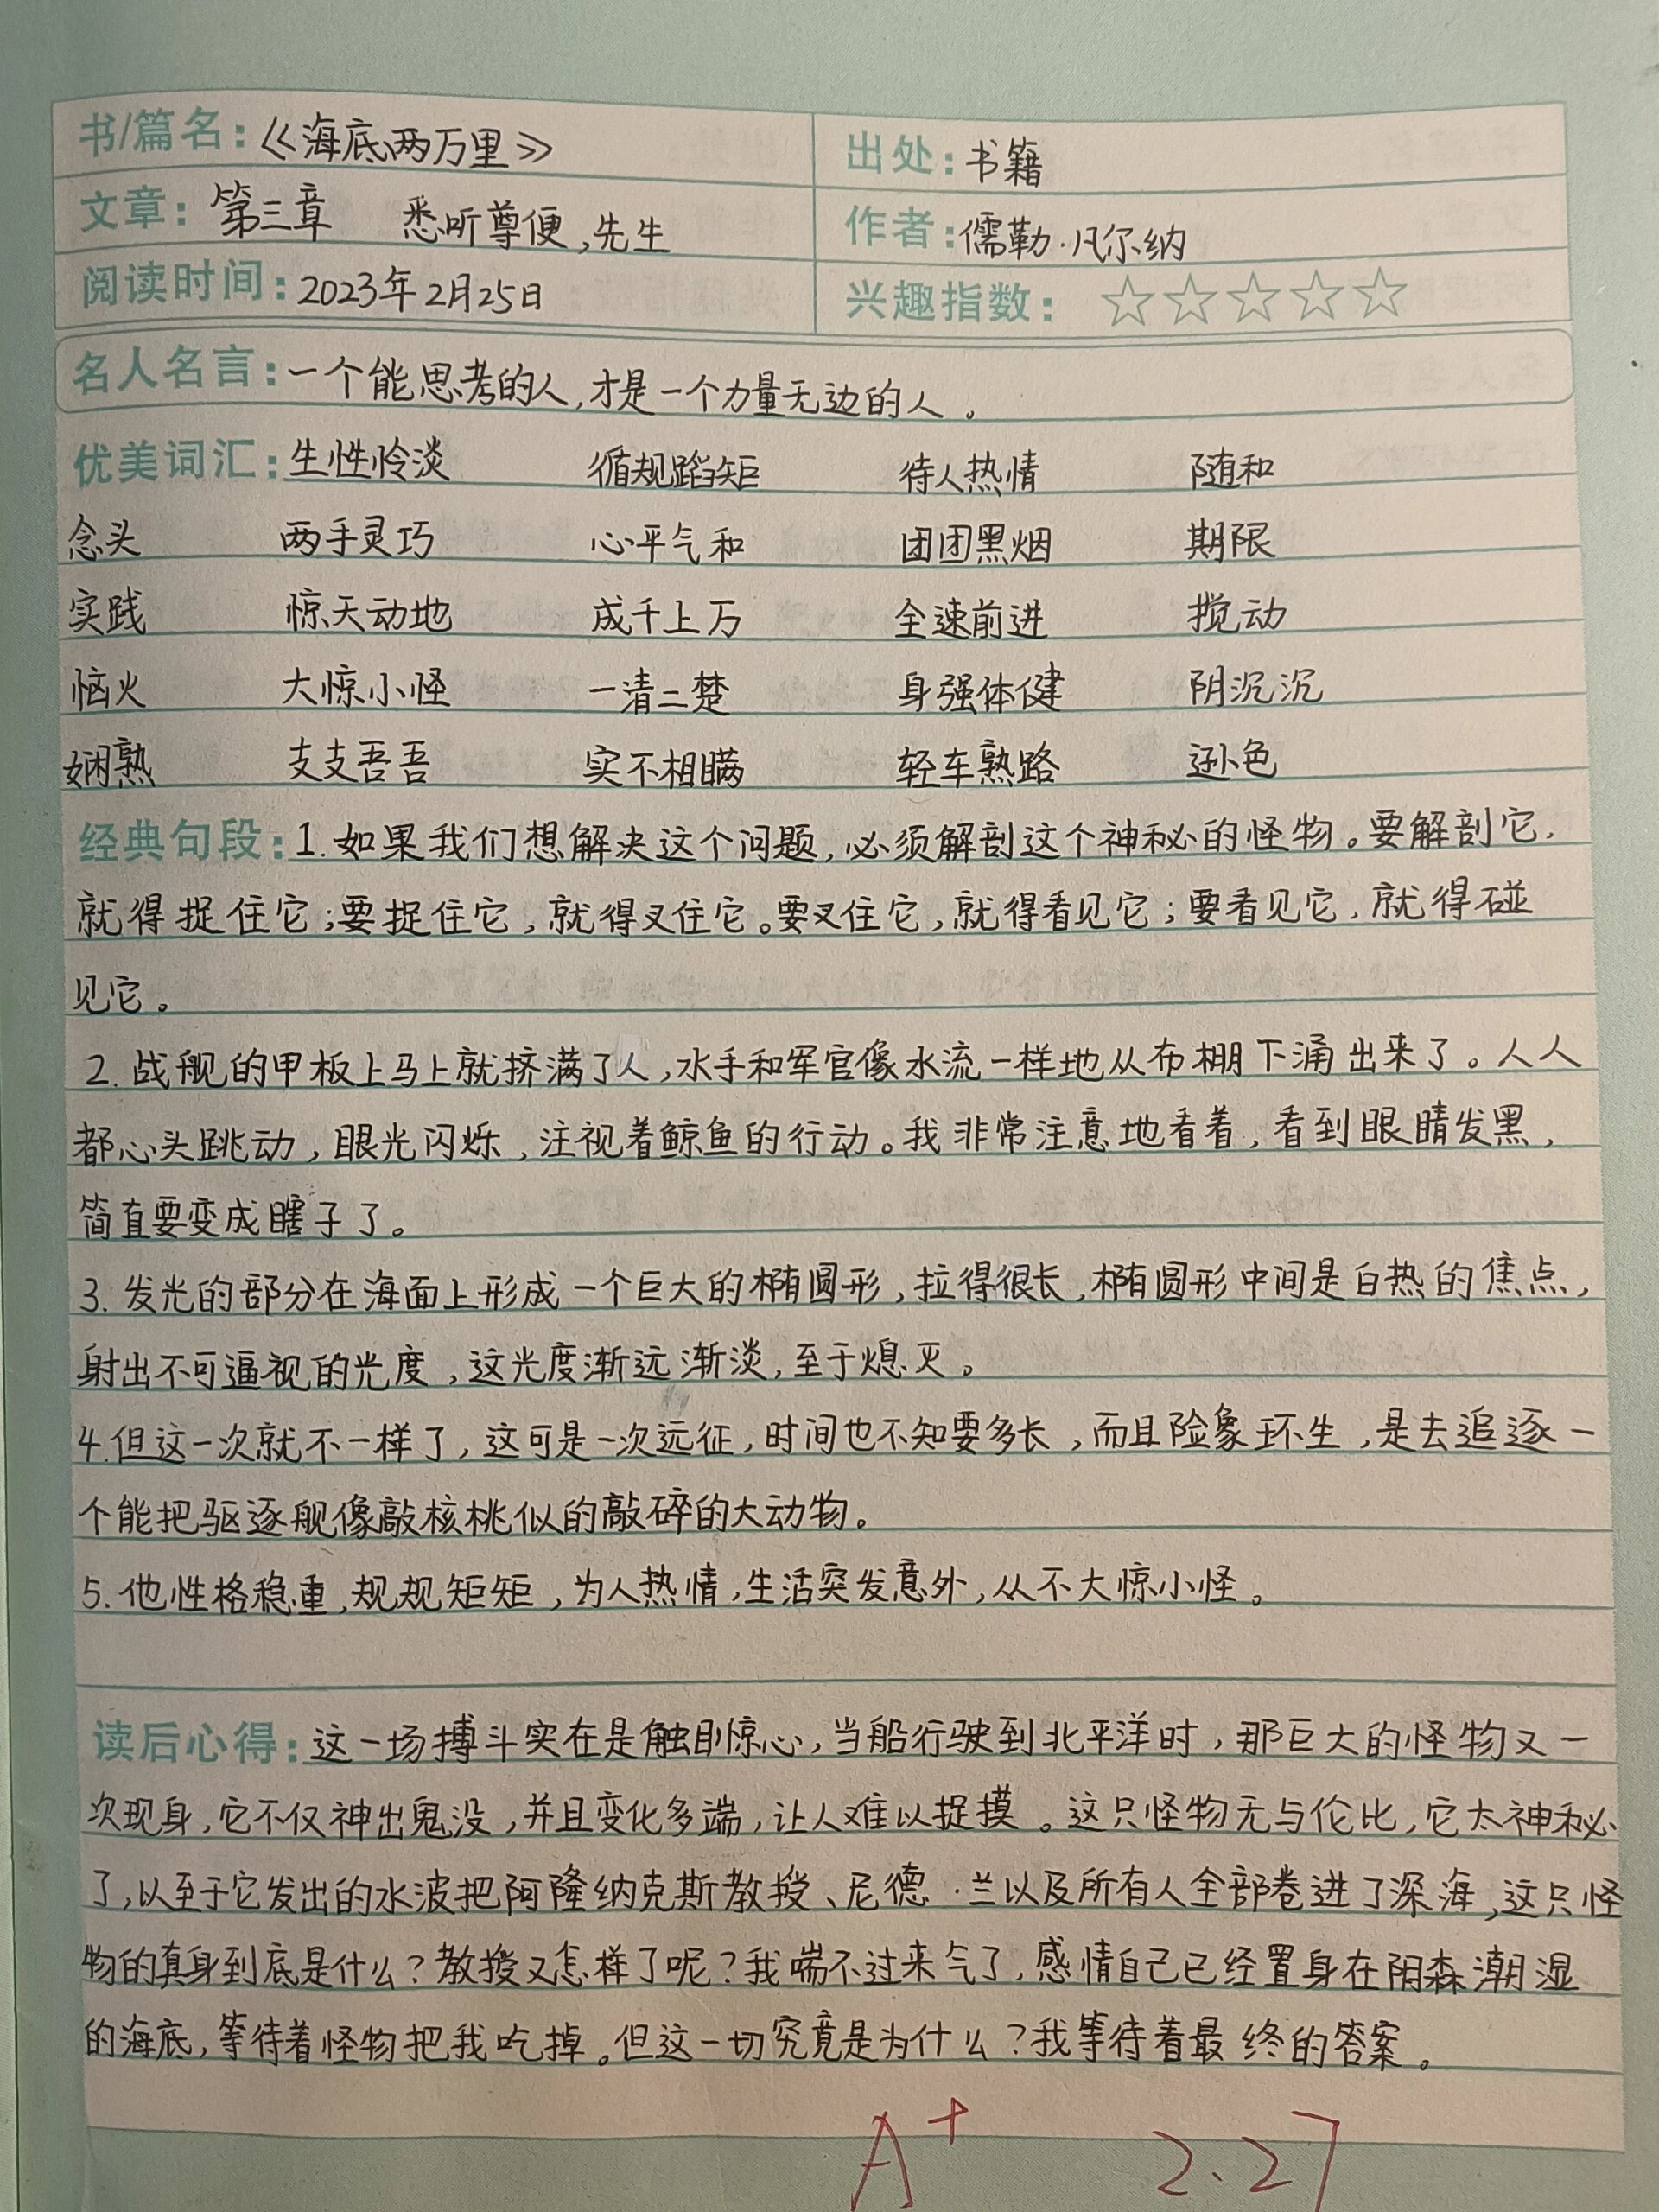 书/篇名：《海底两万里》 出处：书籍
文章：第三章 悉听尊便，先生 作者：儒勒·凡尔纳
阅读时间：2023年2月25日 兴趣指数：☆☆☆☆☆
名人名言：一个能思考的人，才是一个力量无边的人。
优美词汇：生性怜淡 循规蹈矩 待人热情 随和
念头 两手灵巧 心平气和 团团黑烟 期限
实践 惊天动地 成千上万 全速前进 搅动
恼火 大惊小怪 一清二楚 身强体健 阴沉沉
娴熟 支支吾吾 实不相瞒 轻车熟路 逊色
经典句段：1.如果我们想解决这个问题，必须解剖这个神秘的怪物。要解剖它，
就得捉住它；要捉住它，就得叉住它。要叉住它，就得看见它；要看见它，就得碰
见它。
2.战舰的甲板上马上就挤满了人，水手和军官像水流一样地从布棚下涌出来了。人人
都心头跳动，眼光闪烁，注视着鲸鱼的行动。我非常注意地看着，看到眼睛发黑，
简直要变成瞎子了。
3.发光的部分在海面上形成一个巨大的椭圆形，拉得很长，椭圆形中间是白热的焦点，
射出不可逼视的光度，这光度渐远渐淡，至于熄灭。
4.但这一次就不一样了，这可是一次远征，时间也不知要多长，而且险象环生，是去追逐一
个能把驱逐舰像敲核桃似的敲碎的大动物。
5.他性格稳重，规规矩矩，为人热情，生活突发意外，从不大惊小怪。
读后心得：这一场搏斗实在是触目惊心，当船行驶到北平洋时，那巨大的怪物又一
次现身，它不仅神出鬼没，并且变化多端，让人难以捉摸。这只怪物无与伦比，它太神秘
了，以至于它发出的水波把阿隆纳克斯教授、尼德·兰以及所有人全部卷进了深海，这只怪
物的真身到底是什么？教授又怎样了呢？我喘不过来气了，感情自己已经置身在阴森潮湿
的海底，等待着怪物把我吃掉。但这一切究竟是为什么？我等待着最终的答案。
A+ 2.27